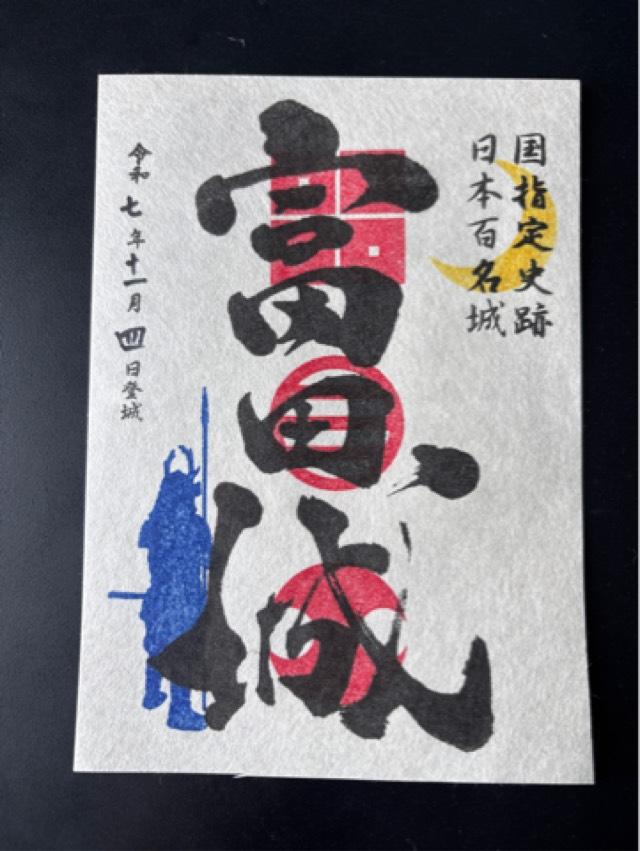 国指定史跡
日本百名城
富田城
令和七年十一月四日登城